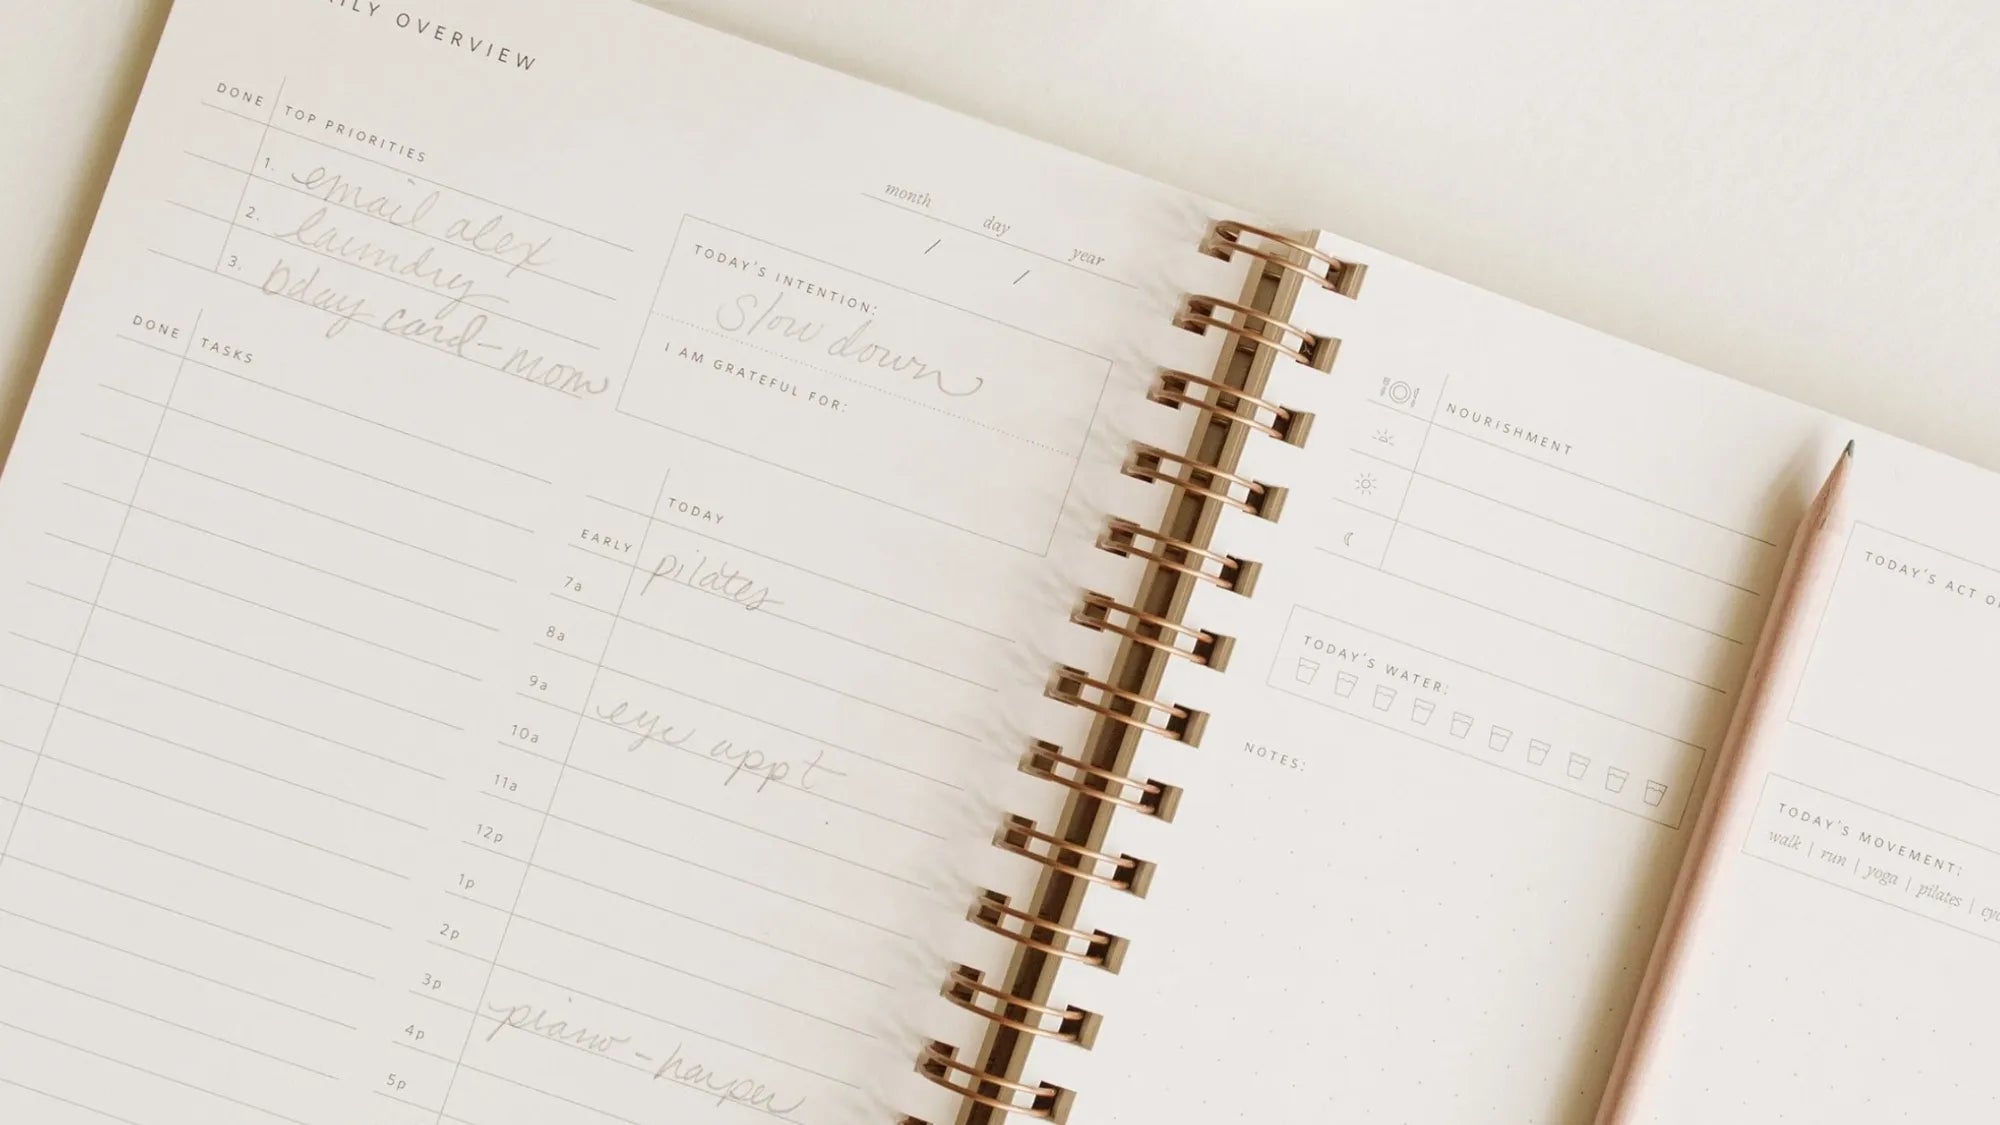 OVERVIEW
DONE TOP PRIORITIES
1. email alex
2. laundry
3. bday card - mom
DONE TASKS
month day year
/ /
TODAY'S INTENTION:
Slow down
I AM GRATEFUL FOR:
TODAY
EARLY pilates
7a
8a
9a eye appt
10a
11a
12p
1p
2p
3p piano - harper
4p
5p
NOURISHMENT
TODAY'S WATER:
NOTES:
TODAY'S ACT
TODAY'S MOVEMENT:
walk | run | yoga | pilates |